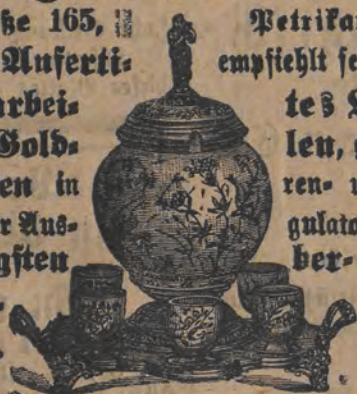 ße 165,
Anferti-
arbei-
Gold-
en in
r Aus-
gsten
Petrika
empfiehlt se
tes
len,
ren-
gulato
ber-